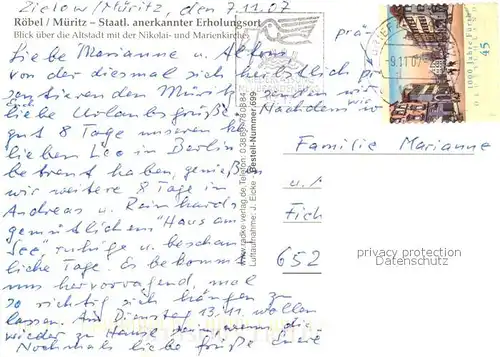 Zielow/Müritz, den 7.11.07
Röbel / Müritz – Staatl. anerkannter Erholungsort
Blick über die Altstadt mit der Nikolai- und Marienkirche
Liebe Marianne u. Alfons,
von der diesmal sich herbstlich prä-
sentierenden Müritz senden wir
liebe Urlaubsgrüße. Nachdem wir
gut 8 Tage unseren kl.
lieben Leo in Berlin
betreut haben, genießen
wir weitere 8 Tage in
Andreas u. Reinhards
gemütlichem "Haus am
See", ruhige u. beschau-
liche Tage. Es bekommt
uns hervorragend, mal
so richtig sich hängen zu
lassen. Am Dienstag 13.11. wollen
wieder zu Hause sein, wenn die
Nochmals liebe Grüße
www.radke-verlag.de, Telefon: 03886/780884
Luftaufnahme: J. Eicke Bestell-Nummer: 699
-9.11.07
1000 Jahre Fürth
45
Familie Marianne
u. A
Fich
652
privacy protection
Datenschutz